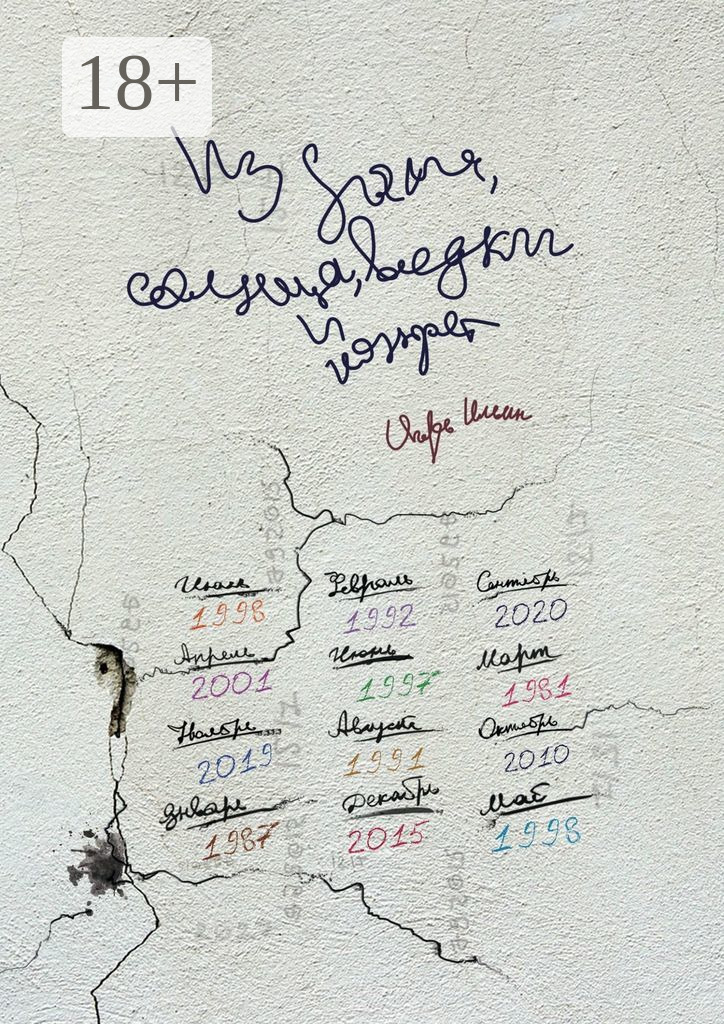 18+
Из
солнца, водки
и
конфет
Игорь Ильин
Июль Февраль Сентябрь
1998 1992 2020
Апрель Июнь Март
2001 1997 1981
Ноябрь Август Октябрь
2019 1991 2010
Январь Декабрь Май
1987 2015 1998